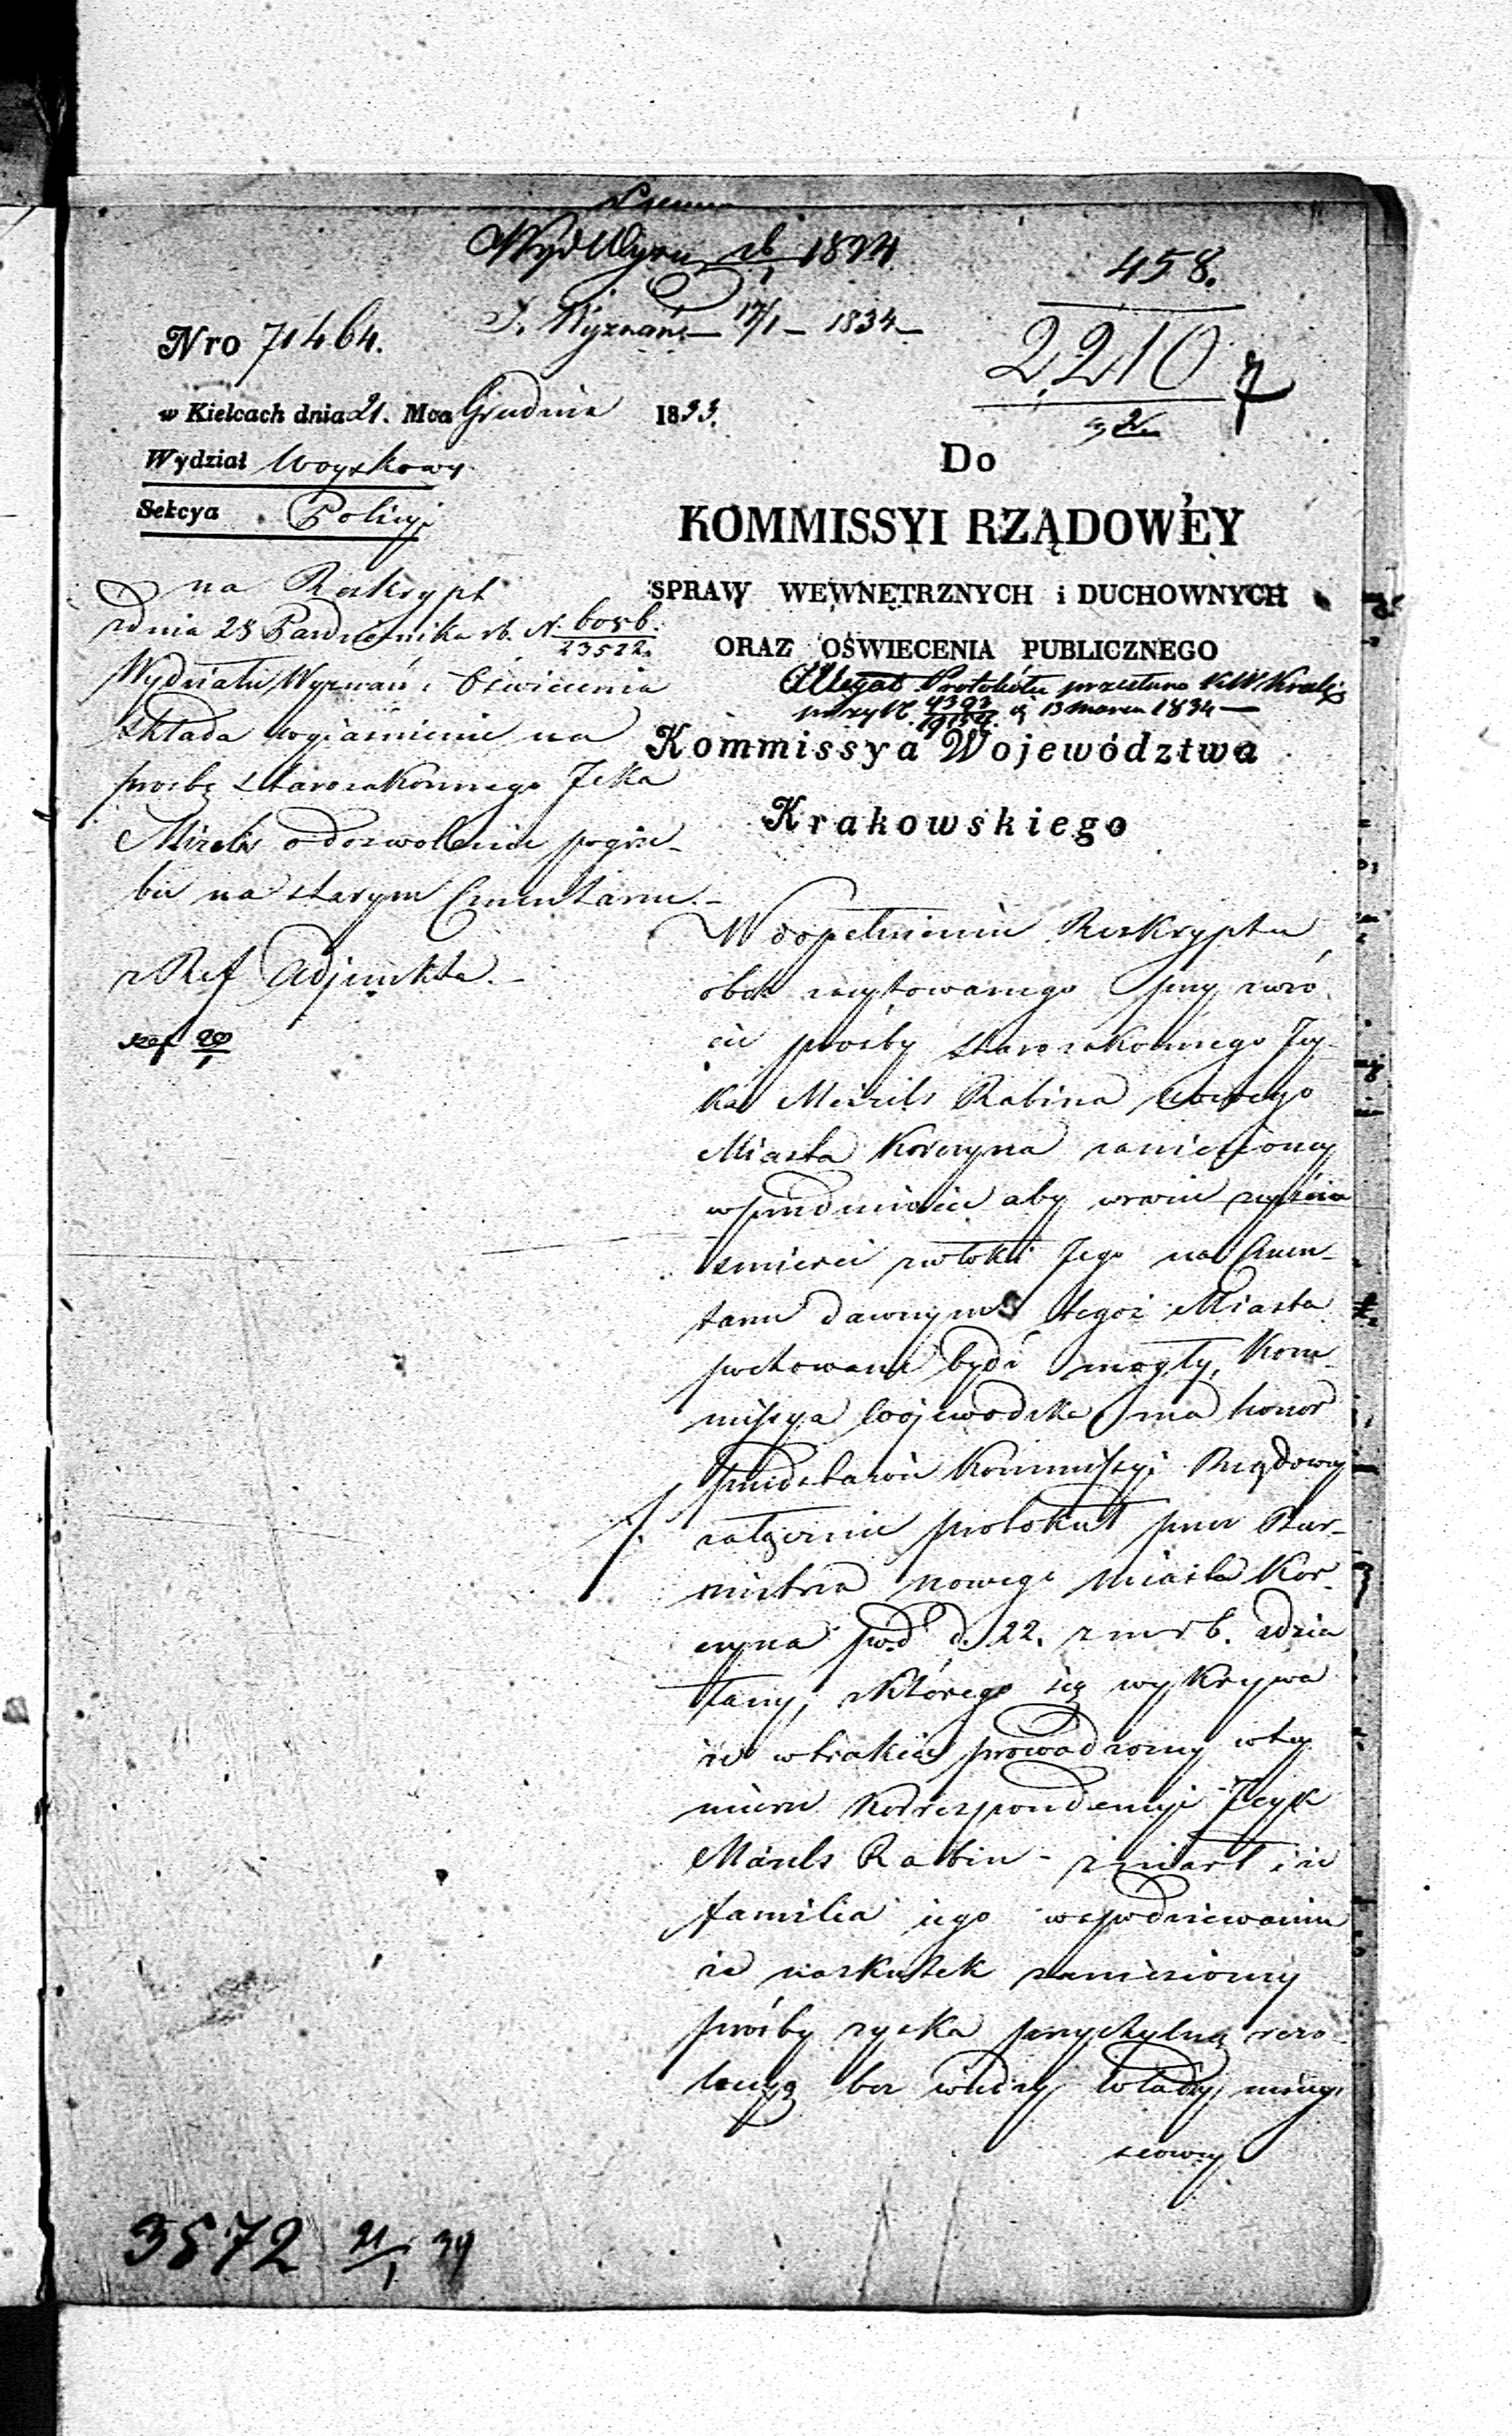 1834
458.
S. Wyznań 17/1 - 1834
2210
7
Nro 71464.
w Kielcach dnia 21. Mca Grudnia 1833.
Wydział Woyskowy
Sekcya Policyi
Do
KOMMISSYI RZĄDOWEY
SPRAW WEWNĘTRZNYCH i DUCHOWNYCH
ORAZ OŚWIECENIA PUBLICZNEGO
Allegat Protokółu przesłano
13 Marca 1834
Kommissya Województwa
Krakowskiego
na Reskrypt
z dnia 28 Pazdziernika rb. N.
23522.
Wydziału Wyznań i Oświecenia
składa wyiaśnienie na
prosbę starozakonnego Jcka
Mizels o dozwolenie pogrze-
bu na starym Cmentarzu.-
z Ref Adjunkta.-
W dopełnieniu Reskryptu
obok zacytowanego przy zwró-
cie prośby starozakonnego Jcy-
ka Meizels Rabina nowego
Miasta Korczyna zanieśioney
w przedmiocie aby w razie zeyścia
śmierci zwłoki Jego na Cmen-
tarzu dawnym tegoż Miasta
pochowane bydź mogły, Kom-
missya Wojewodzka ma honor
przedstawić Kommissyi Rządowey
załącznie protokuł przez Bur-
mistrza nowego Miasta Kor-
czyna pod d. 22. z m r b. zdzia
łany, z którego się wykrywa
że w trakcie prowadzoney w tey
mierze Korrespondencyi Jcyk
Mazels Rabin - zmarł i że
familia iego w spodziewaniu
że na skutek zaniesioney
prośby zyska przychylną rezo-
lucyą bez wiedzy Władzy mieys
scowey
3572 21/1 34